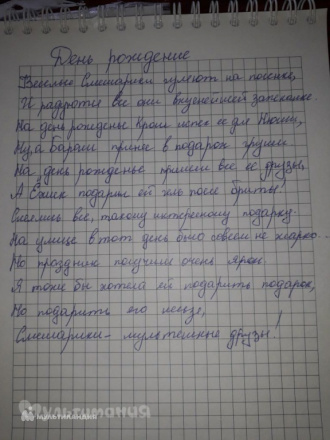 День рождение
Весёлые Смешарики гуляют на посенке,
И радуются все они вкуснейшей запеканке.
На день рожденье Крош испек ее для Нюши,
Ну, а Бараш принес в подарок груши
На день рожденье пришли все её друзья,
А Ёжик подарил ей гель после бритья!
Смеялись все, такому интересному подарку.
На улице в тот день было совсем не жарко...
Но праздник получился очень ярок.
Я тоже бы хотела ей подарить подарок,
Но подарить его нельзя,
Смешарики - мультяшные друзья!
Мультимания
МУЛЬТИМАНИЯ